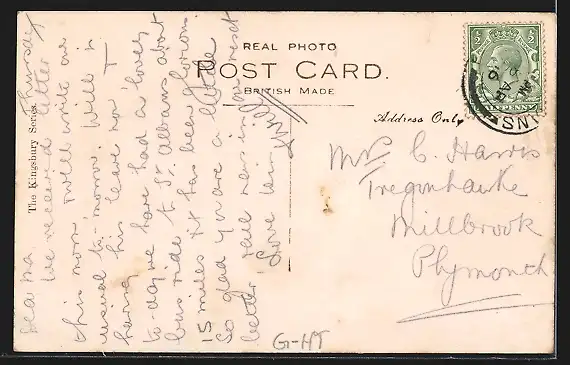 REAL PHOTO
POST CARD.
BRITISH MADE
Address Only
The Kingsbury Series.
Thursday
Dear ma
We received letter
this morn, will write as
usual to-morrow. Will is
having his leave now
to-day we have had a lovely
bus ride to St. Albans about
15 miles it has been glorious
So glad you are a little
better take care in
Love Win Will
Mrs C. Harris
Tregenhawke
Millbrook
Plymouth
G-HT